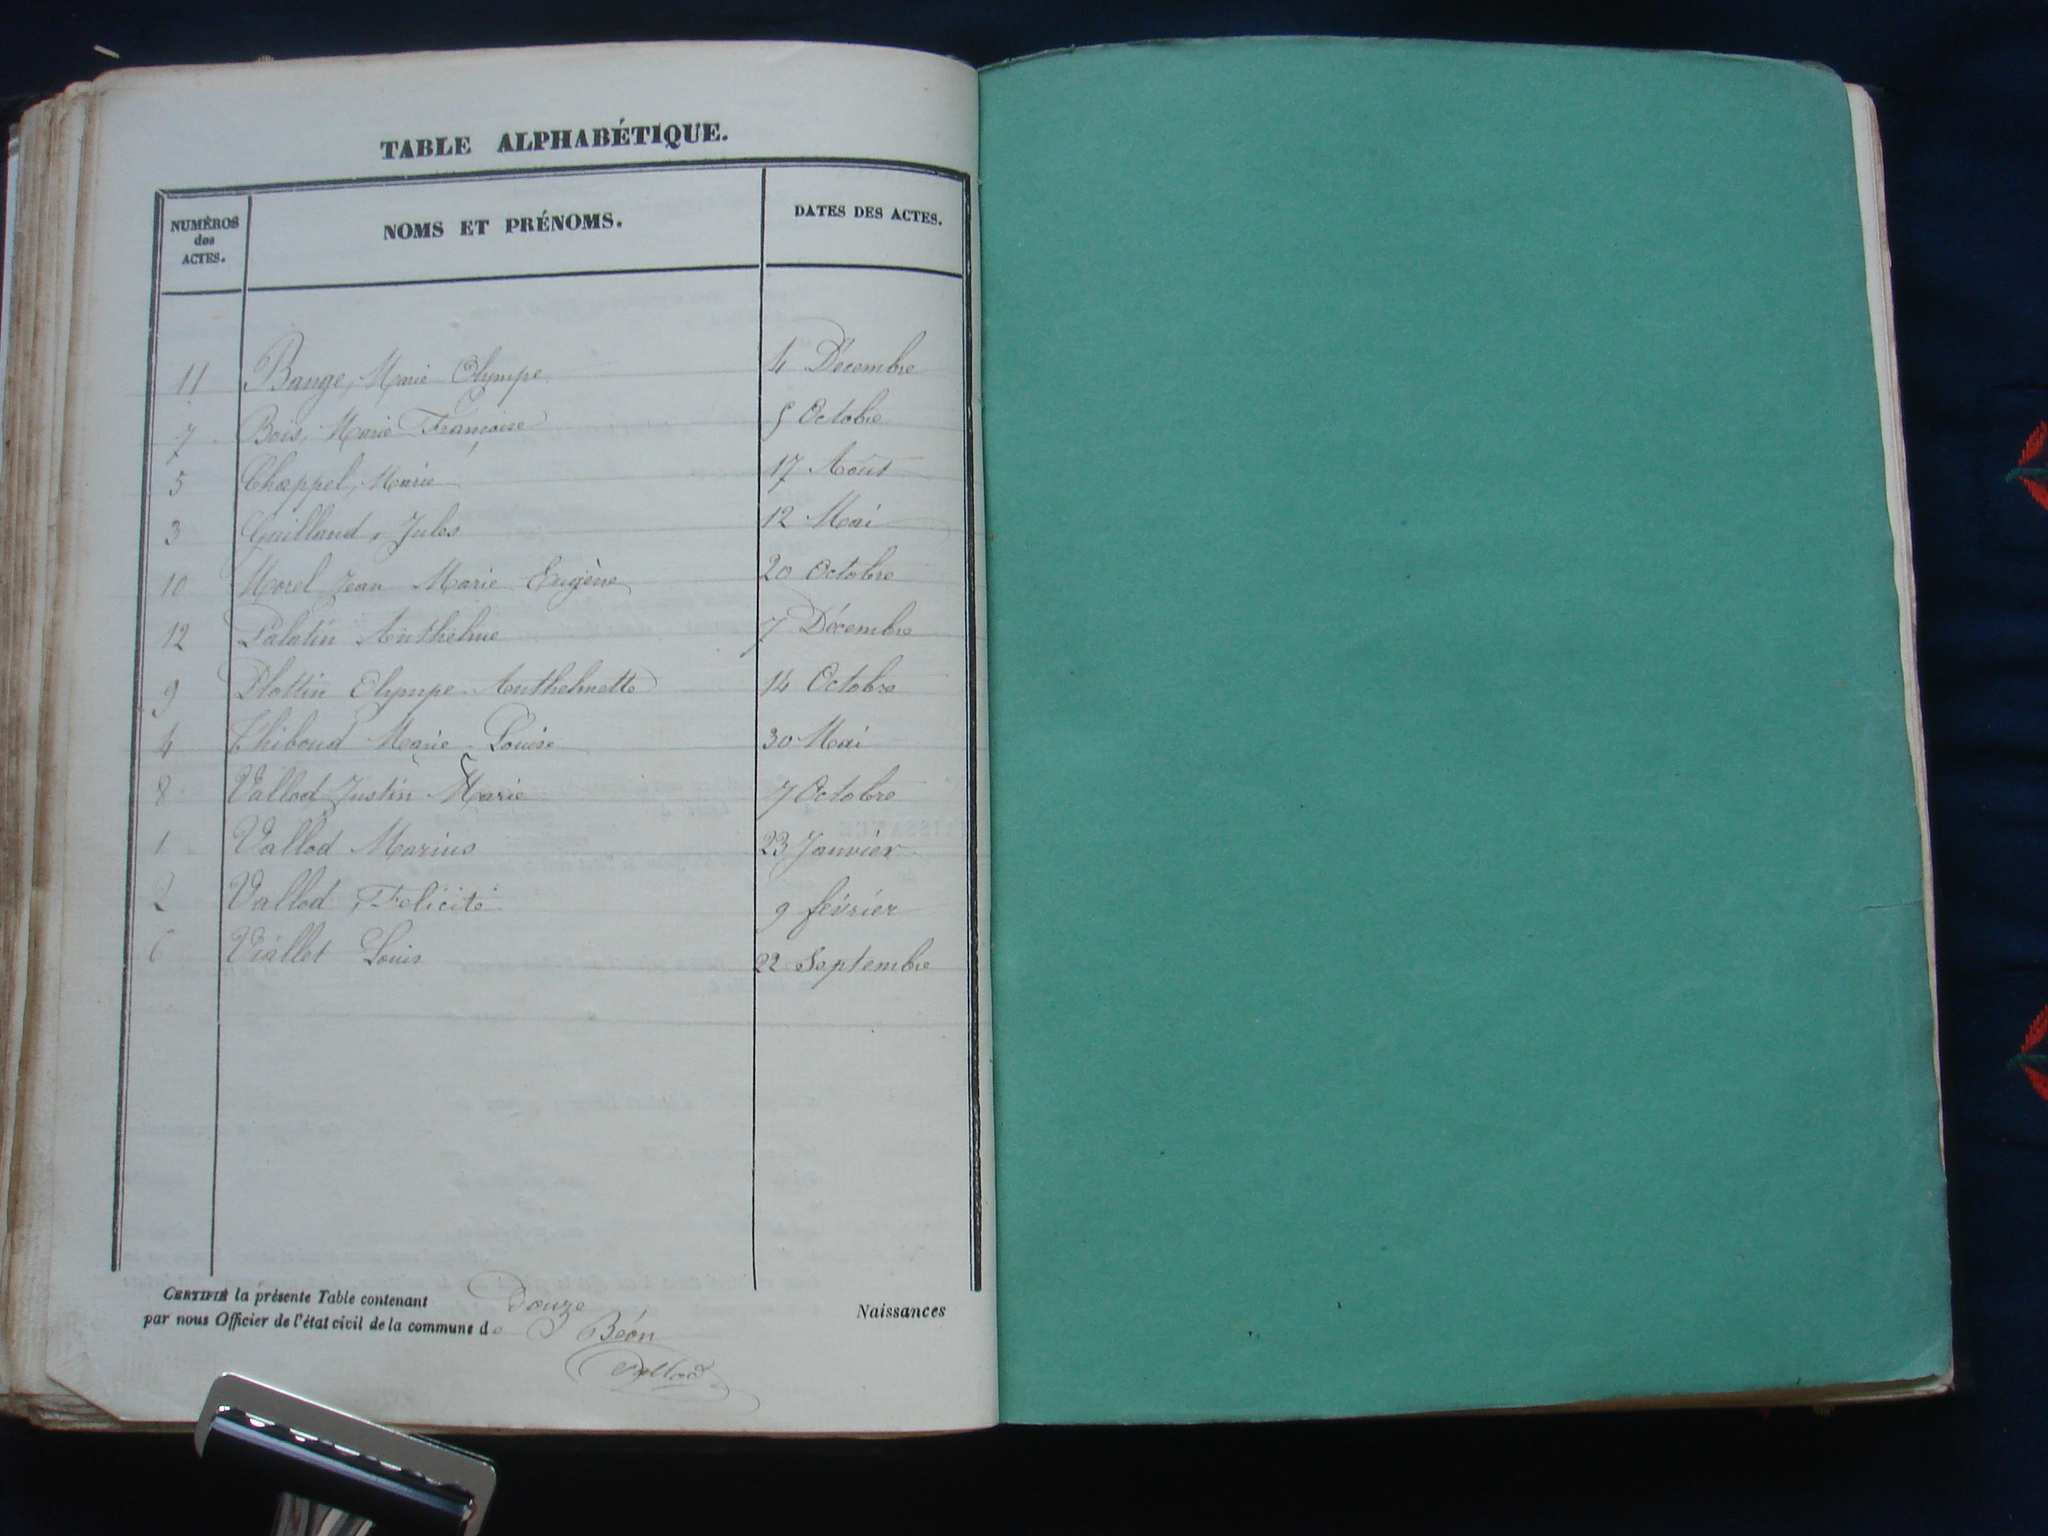 TABLE ALPHABÉTIQUE.
NUMÉROS des ACTES. NOMS ET PRÉNOMS. DATES DES ACTES.
11 Bange, Marie Olympe 4 Décembre
7 Bois, Marie Françoise 5 Octobre
5 Chappel, Marie 17 Août
3 Guilland, Jules 12 Mai
10 Morel Jean Marie Eugène 20 Octobre
12 Palatin Anthelme 7 Décembre
9 Plottin Olympe Anthelmette 14 Octobre
4 Thiboud Marie Louise 30 Mai
8 Vallod Justin Marie 7 Octobre
1 Vallod Marius 23 Janvier
2 Vallod, Félicité 9 février
6 Viallet Louis 22 Septembre
CERTIFIÉ la présente Table contenant Douze Naissances
par nous Officier de l'état civil de la commune de Béon
Vallod